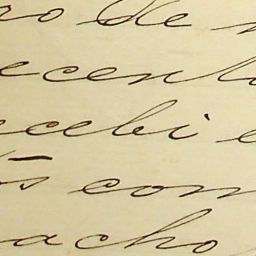 ro de
ecent
ecebi e
os com
acho